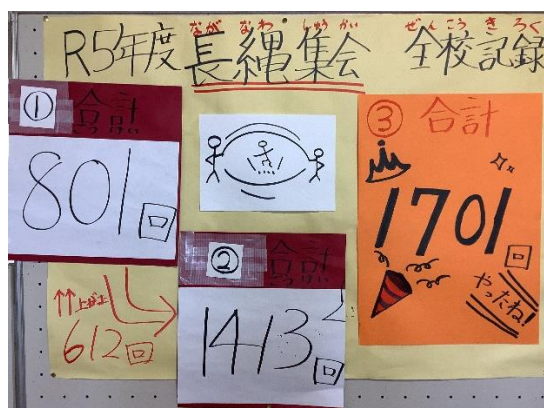 R5年度長縄集会 全校記録
ながなわしゅうかい ぜんこうきろく
① 合計
801回
↑↑上がった
612回
② 合計
1413回
③ 合計
1701回
やったね!